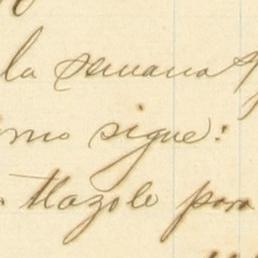 la semana
como sigue:
Mazole para